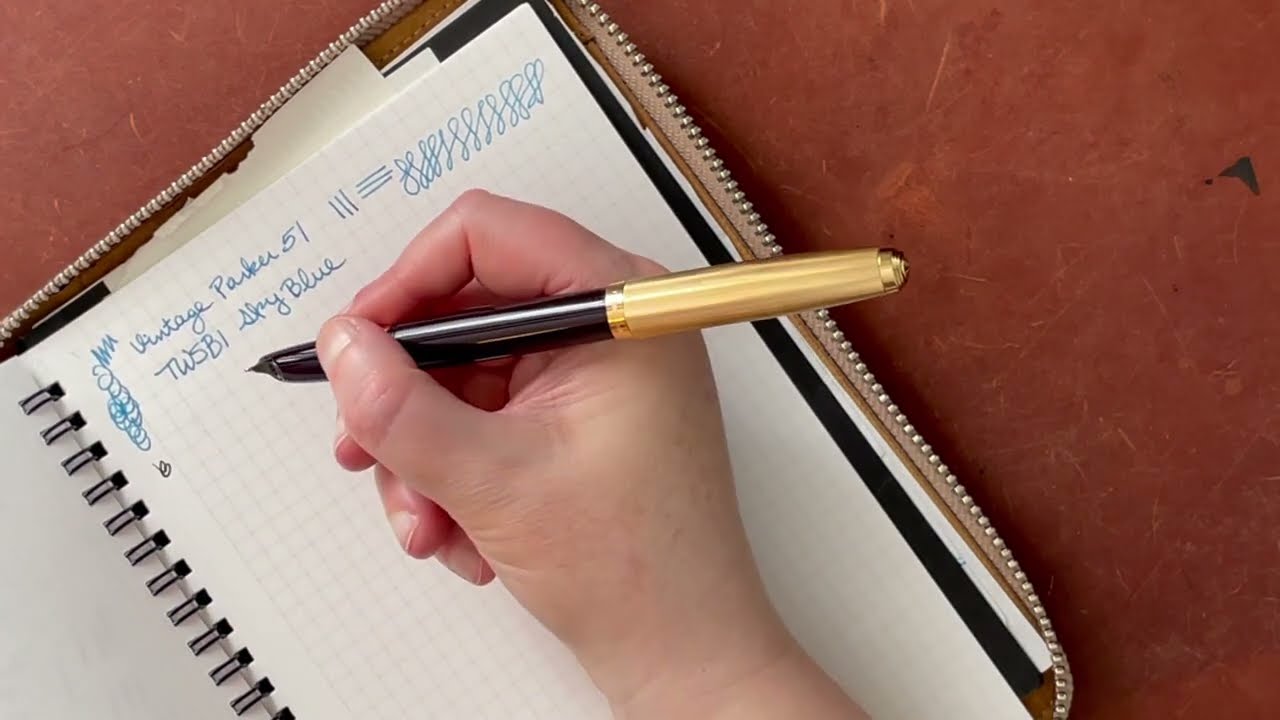 Vintage Parker 51
TWSBI Sky Blue